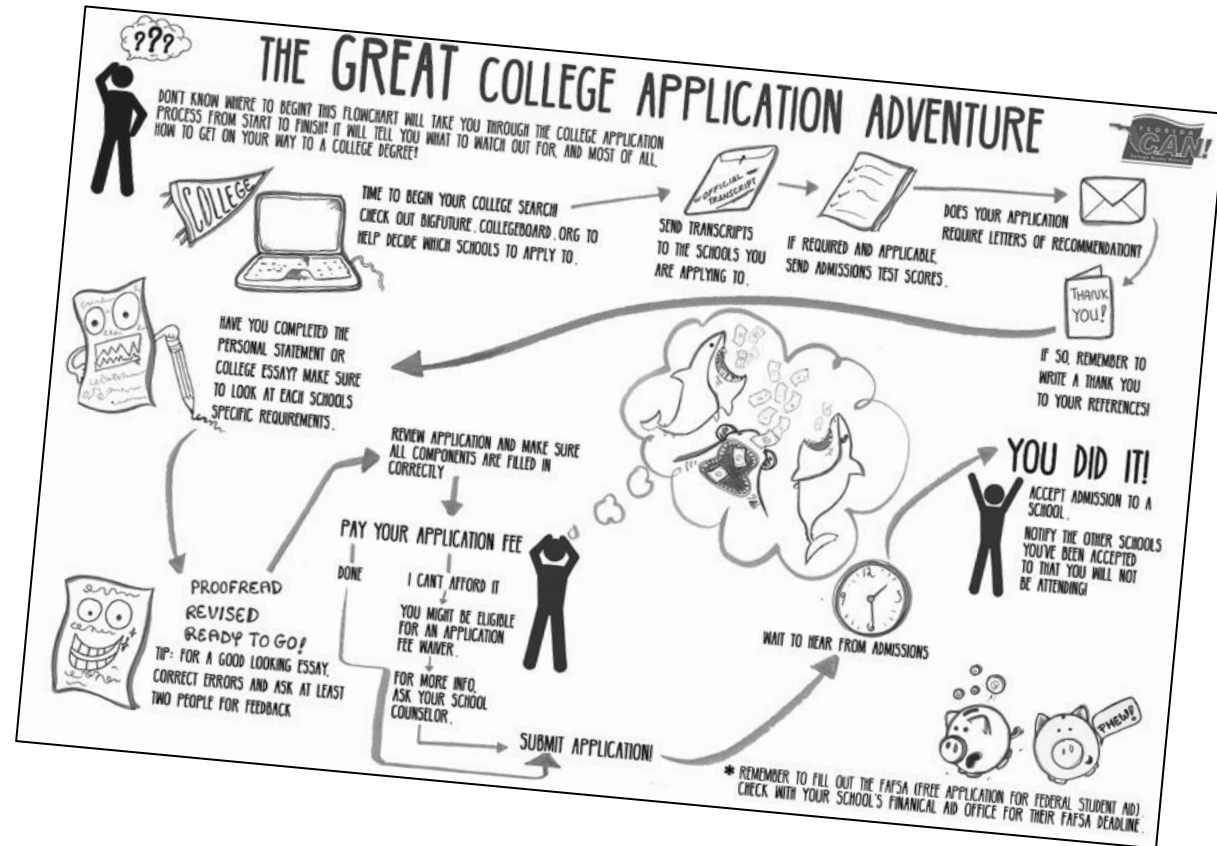 ???
THE GREAT COLLEGE APPLICATION ADVENTURE
DON'T KNOW WHERE TO BEGIN? THIS FLOWCHART WILL TAKE YOU THROUGH THE COLLEGE APPLICATION
PROCESS FROM START TO FINISH! IT WILL TELL YOU WHAT TO WATCH OUT FOR, AND MOST OF ALL,
HOW TO GET ON YOUR WAY TO A COLLEGE DEGREE!
FLORIDA
CAN!
College Access Network
COLLEGE
TIME TO BEGIN YOUR COLLEGE SEARCH!
CHECK OUT BIGFUTURE.COLLEGEBOARD.ORG TO
HELP DECIDE WHICH SCHOOLS TO APPLY TO.
OFFICIAL
TRANSCRIPT
SEND TRANSCRIPTS
TO THE SCHOOLS YOU
ARE APPLYING TO.
IF REQUIRED AND APPLICABLE,
SEND ADMISSIONS TEST SCORES.
DOES YOUR APPLICATION
REQUIRE LETTERS OF RECOMMENDATION?
THANK
YOU!
IF SO, REMEMBER TO
WRITE A THANK YOU
TO YOUR REFERENCES!
HAVE YOU COMPLETED THE
PERSONAL STATEMENT OR
COLLEGE ESSAY? MAKE SURE
TO LOOK AT EACH SCHOOLS
SPECIFIC REQUIREMENTS.
PROOFREAD
REVISED
READY TO GO!
TIP: FOR A GOOD LOOKING ESSAY,
CORRECT ERRORS AND ASK AT LEAST
TWO PEOPLE FOR FEEDBACK
REVIEW APPLICATION AND MAKE SURE
ALL COMPONENTS ARE FILLED IN
CORRECTLY
PAY YOUR APPLICATION FEE
DONE
I CAN'T AFFORD IT
YOU MIGHT BE ELIGIBLE
FOR AN APPLICATION
FEE WAIVER.
FOR MORE INFO,
ASK YOUR SCHOOL
COUNSELOR.
SUBMIT APPLICATION!
12
3
6
9
WAIT TO HEAR FROM ADMISSIONS
YOU DID IT!
ACCEPT ADMISSION TO A
SCHOOL.
NOTIFY THE OTHER SCHOOLS
YOU'VE BEEN ACCEPTED
TO THAT YOU WILL NOT
BE ATTENDING!
PHEW!
* REMEMBER TO FILL OUT THE FAFSA (FREE APPLICATION FOR FEDERAL STUDENT AID).
CHECK WITH YOUR SCHOOL'S FINANICAL AID OFFICE FOR THEIR FAFSA DEADLINE.